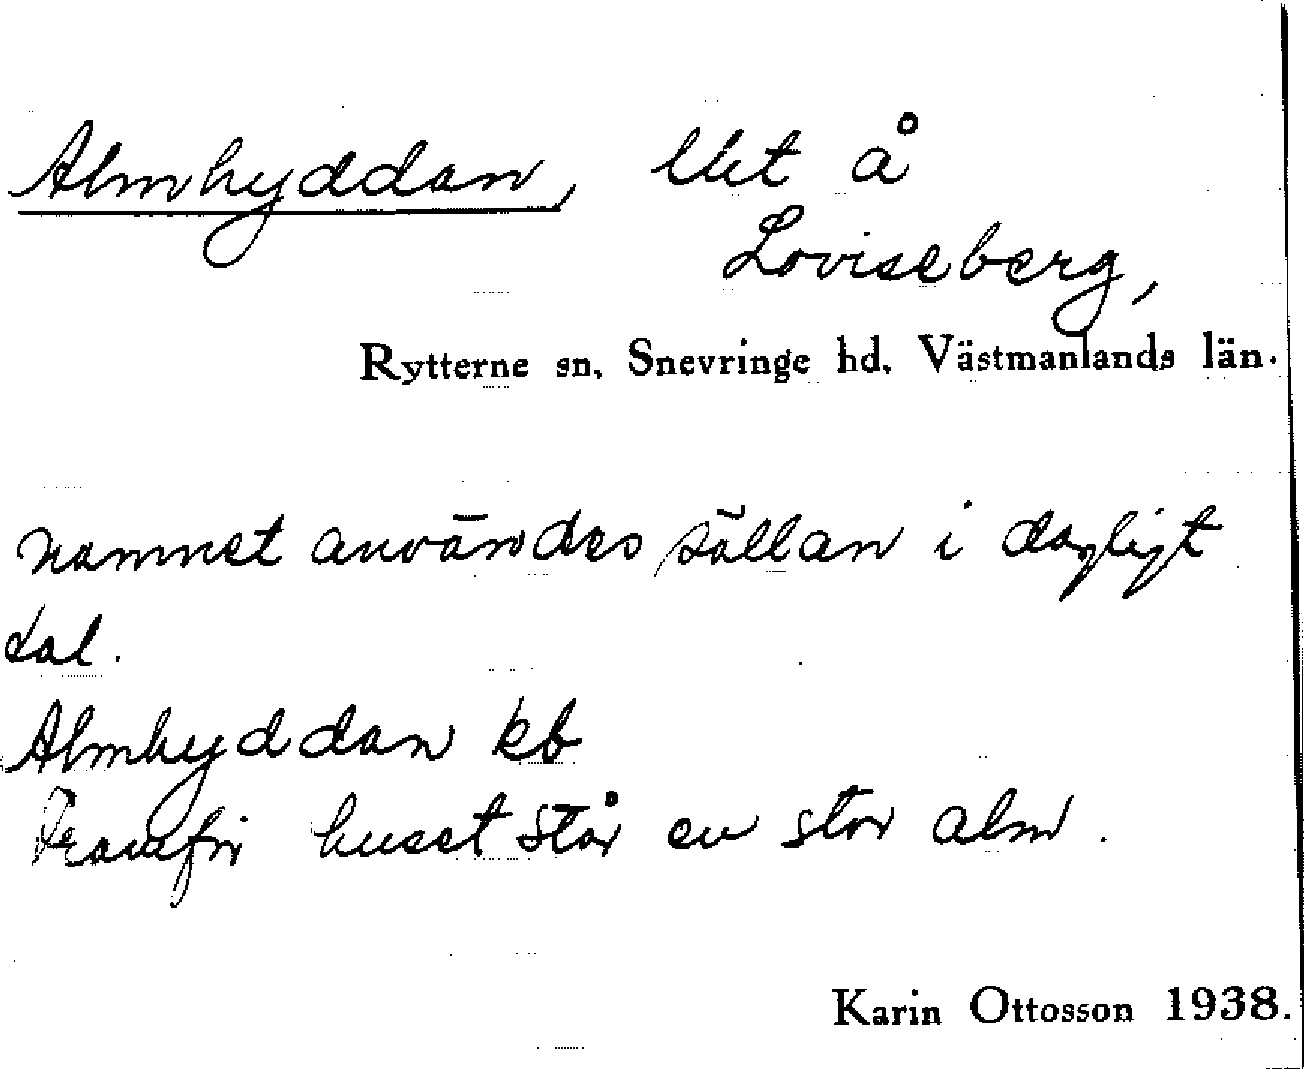 Almhyddan, lht å
Loviseberg,
Rytterne sn. Snevringe hd. Västmanlands län.
namnet användes sällan i dagligt
tal.
Almhyddan kb
Framför huset står en stor alm.
Karin Ottosson 1938.